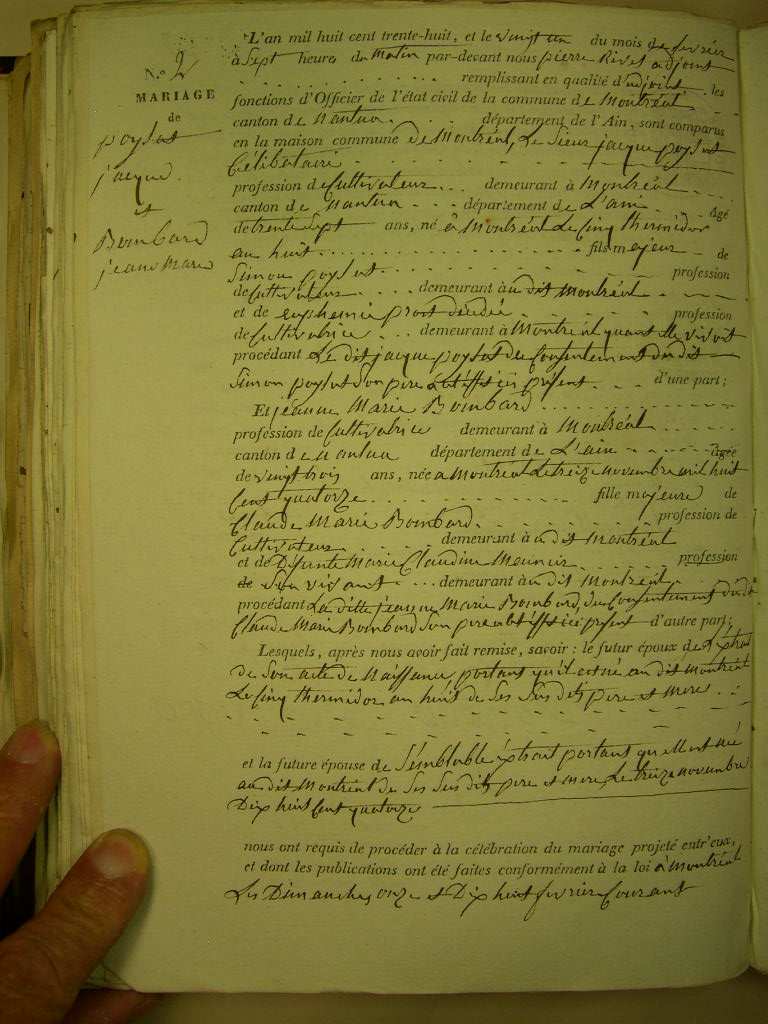 N.º 2
MARIAGE
de
poysat
jacque
et
Bombard
jeane Marie
L'an mil huit cent trente-huit, et le vingt un du mois de fevrier
à Sept heure du Matin par-devant nous pierre Rivet adjoint
remplissant en qualité d'adjoint les
fonctions d'Officier de l'état civil de la commune de Montréal
canton de Nantua département de l'Ain, sont comparus
en la maison commune de Montréal, Le Sieur jacque poysat
Célibataire
profession de Cultivateur demeurant à Montréal
canton de Nantua département de L'ain âgé
de trente Sept ans, né à Montréal Le Cinq thermidor
an huit fils majeur de
Simon poysat profession
de Cultivateur demeurant à u dit Montréal
et de euphemie prost décédée profession
de Cultivatrice demeurant à Montréal quant elle vivoit
procédant Le dit jacque poysat du Consentement du dit
Simon poysat Son pere ici présent d'une part;
Et jeanne Marie Bombard
profession de Cultivatrice demeurant à Montréal
canton de Nantua département de L'ain âgée
de vingt trois ans, née a Montréal Le treize novembre mil huit
Cent quatorze fille majeure de
Claude Marie Bombard profession de
Cultivateur demeurant à u dit Montréal
et de Défunte Marie Claudine Meunier profession
de Son vivant demeurant à u dit Montréal
procédant La ditte jeanne Marie Bombard, du Consentement du dit
Claude Marie Bombard Son pere ici présent d'autre part;
Lesquels, après nous avoir fait remise, savoir : le futur époux de L'éxtrait
de Son acte de Naissance, portant qu'il est né au dit Montréal
Le Cinq thermidor an huit de Ses Sus dits pere et mere
et la future épouse de Sémblable éxtrait portant qu'elle est née
au dit Montréal de Ses Sus dits pere et mere, Le treize novembre
Dix huit Cent quatorze
nous ont requis de procéder à la célébration du mariage projeté entr'eux,
et dont les publications ont été faites conformément à la loi à Montréal
Les Dimanches onze et Dix huit fevrier Courant